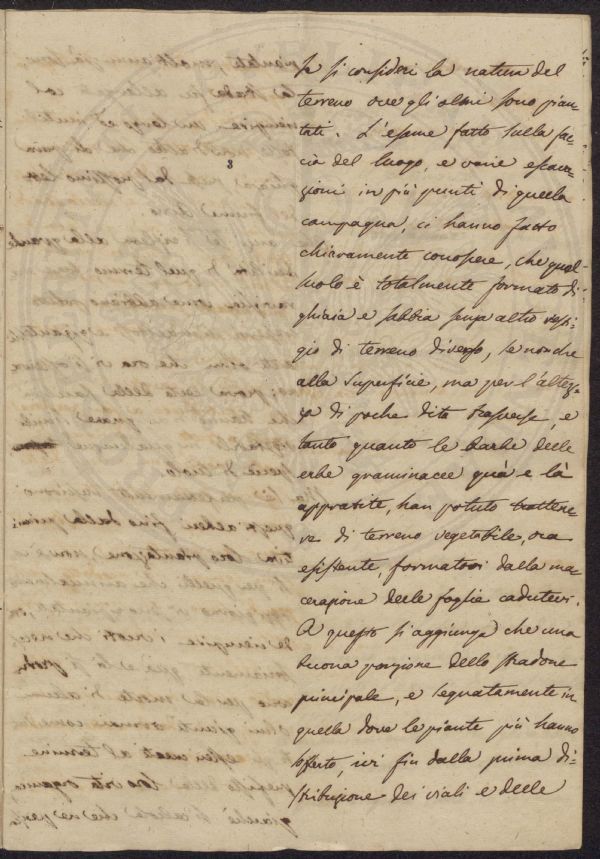 se si consideri la natura del
terreno ove gli olmi sono pian-
tati. L'esame fatto sulla fac-
cia del luogo, e varie escava-
zioni in più punti di quella
campagna, ci hanno fatto
chiaramente conoscere, che quel
suolo è totalmente formato di
ghiaia e sabbia senza altro vesti-
gio di terreno diverso, se non che
alla superficie, ma per l'altez-
za di poche dita trasverse, e
tanto quanto le barbe delle
erbe graminacee quà e là
apparsite, han potuto trattene-
re di terreno vegetabile, ora
esistente, formatosi dalla ma-
cerazione delle foglie cadutevi.
A questo si aggiunga che una
buona porzione dello stradone
principale, e segnatamente in
quella dove le piante più hanno
sofferto, ivi fin dalla prima di-
stribuzione dei viali e delle
3